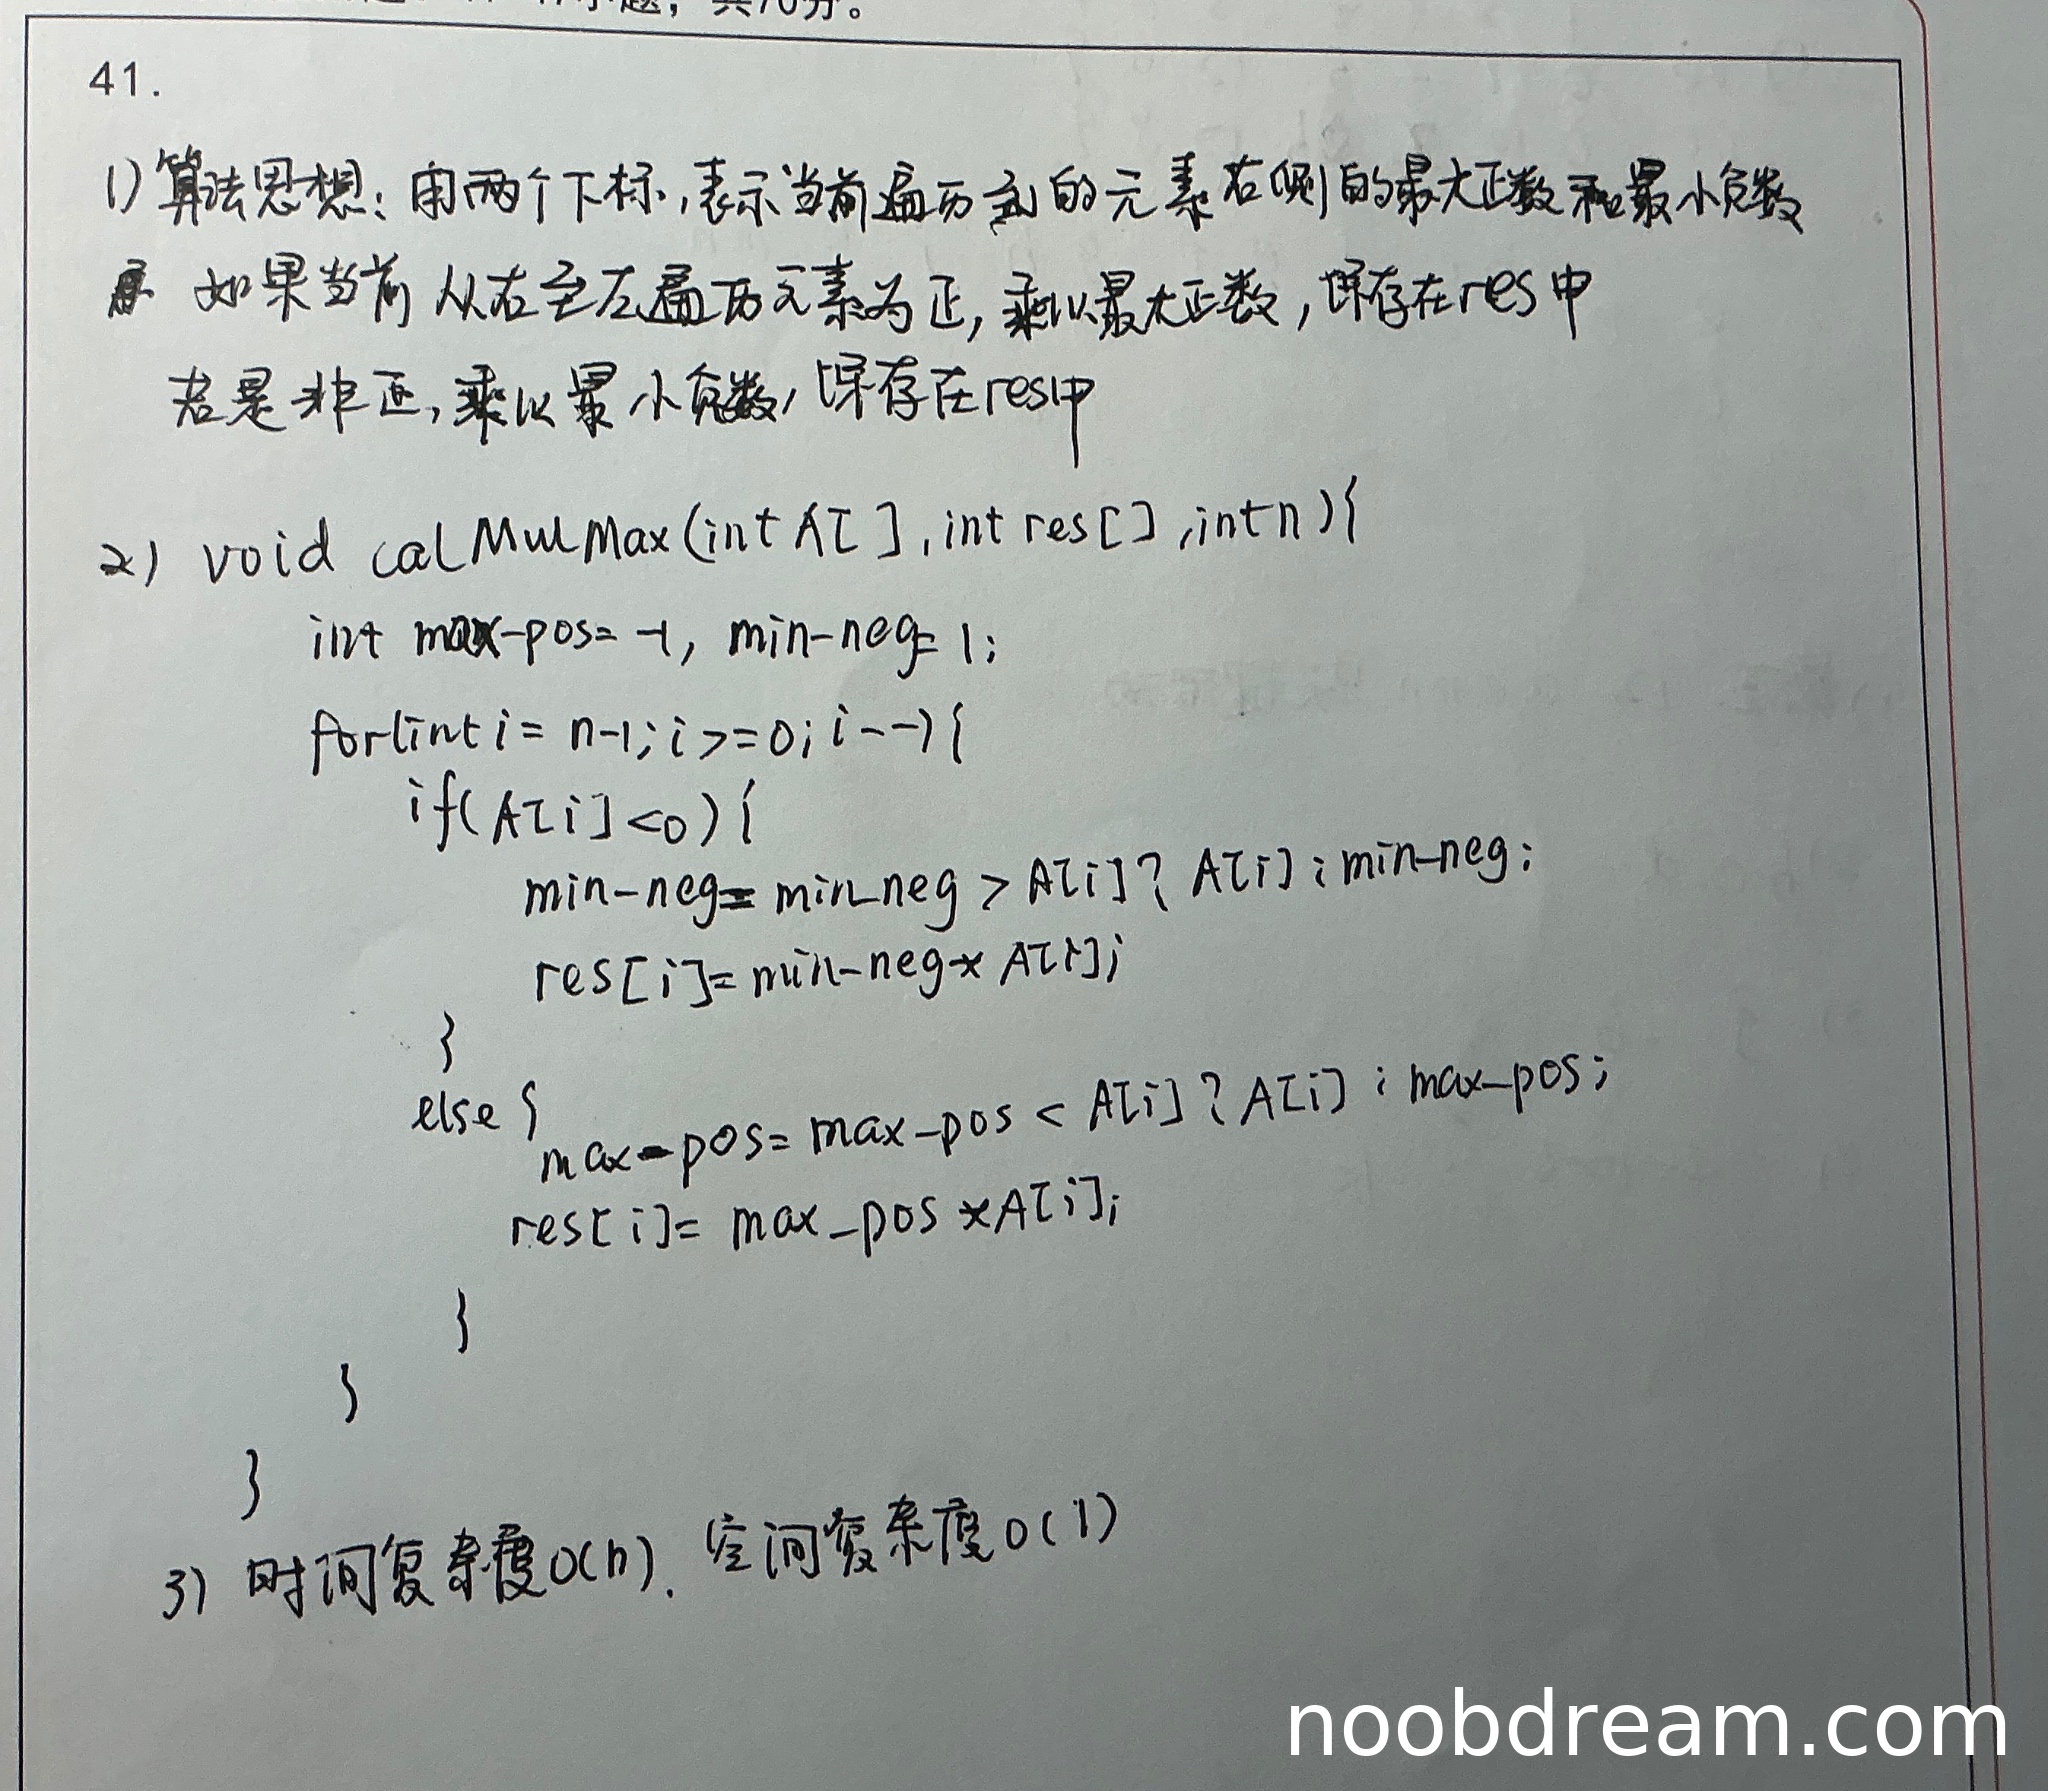 小题，共70分。
41.
1) 算法思想：用两个下标，表示当前遍历到的元素右侧的最大正数和最小负数
如果当前从右至左遍历元素为正，乘以最大正数，保存在res中
若是非正，乘以最小负数，保存在res中
2) void calMulMax(int A[],int res[],int n){
int max-pos= -1, min-neg= 1;
for(int i= n-1;i>=0;i--){
if(A[i]<0){
min-neg= min_neg > A[i]? A[i]:min-neg;
res[i]=min-neg* A[i];
}
else {
max-pos= max_pos < A[i]?A[i]:max_pos;
res[i]= max_pos *A[i];
}
}
}
3) 时间复杂度O(n). 空间复杂度O(1)
noobdream.com